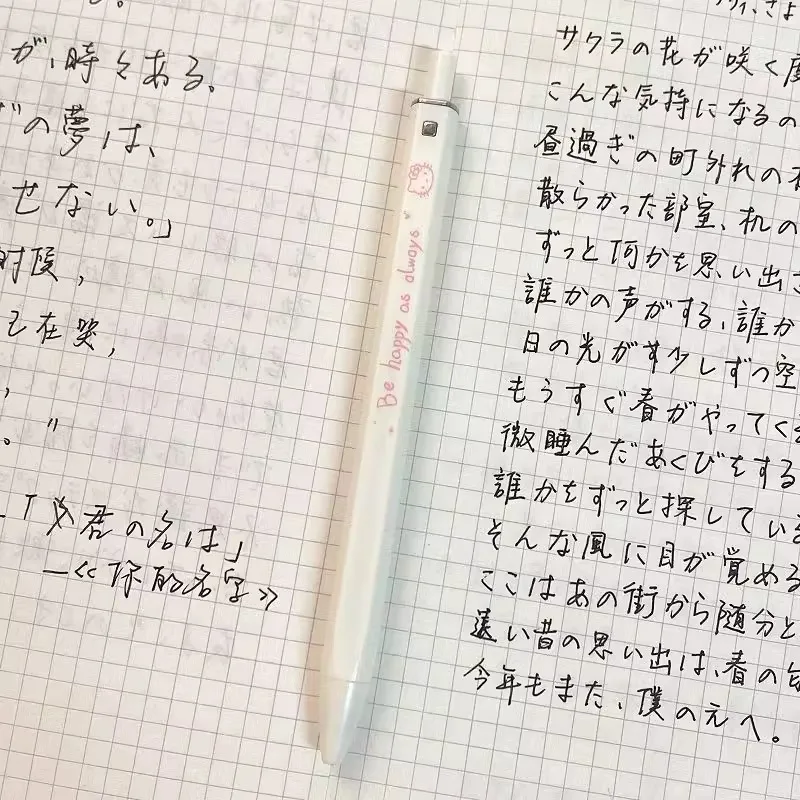 が、時々ある、
の夢は、
せない。」
时候，
己在哭，
，
。”
「君の名は」
—《你的名字》
Be happy as always
サクラの花が咲く度
こんな気持になるの
昼過ぎの町外れの
散らかった部室、机の
ずっと何かを思い出さ
誰かの声がする、誰か
日の光が少しずつ空
もうすぐ春がやってく
微睡んだあくびをする
誰かをずっと探してい
そんな風に目が覚める
ここはあの街から随分と
遠い昔の思い出は、春の
今年もまた、僕の元へ。